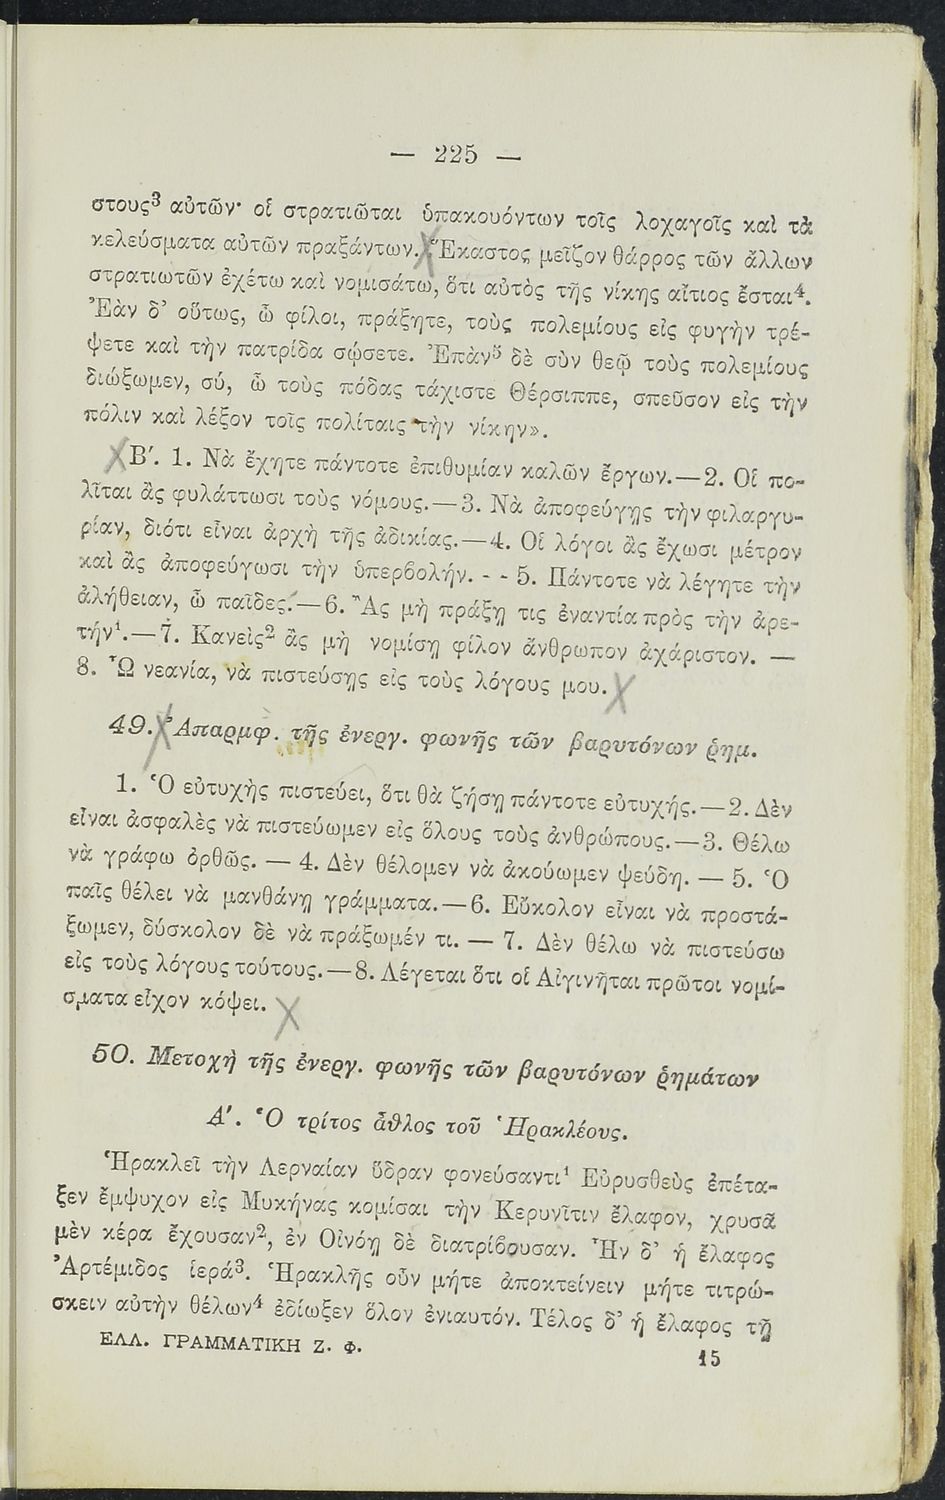 — 225 —
στους³ αὐτῶν· οἱ στρατιῶται ὑπακουόντων τοῖς λοχαγοῖς καὶ τὰ
κελεύσματα αὐτῶν πραξάντων. Ἕκαστος μεῖζον θάρρος τῶν ἄλλων
στρατιωτῶν ἐχέτω καὶ νομισάτω, ὅτι αὐτὸς τῆς νίκης αἴτιος ἔσται⁴.
Ἐὰν δ’ οὕτως, ὦ φίλοι, πράξητε, τοὺς πολεμίους εἰς φυγὴν τρέ-
ψετε καὶ τὴν πατρίδα σῴσετε. Ἐπὰν⁵ δὲ σὺν θεῷ τοὺς πολεμίους
διώξωμεν, σύ, ὦ τοὺς πόδας τάχιστε Θέρσιππε, σπεῦσον εἰς τὴν
πόλιν καὶ λέξον τοῖς πολίταις τὴν νίκην».
Β′. 1. Νὰ ἔχητε πάντοτε ἐπιθυμίαν καλῶν ἔργων.—2. Οἱ πο-
λῖται ἂς φυλάττωσι τοὺς νόμους.—3. Νὰ ἀποφεύγῃς τὴν φιλαργυ-
ρίαν, διότι εἶναι ἀρχὴ τῆς ἀδικίας.—4. Οἱ λόγοι ἂς ἔχωσι μέτρον
καὶ ἂς ἀποφεύγωσι τὴν ὑπερβολήν. - - 5. Πάντοτε νὰ λέγητε τὴν
ἀλήθειαν, ὦ παῖδες.—6. Ἂς μὴ πράξῃ τις ἐναντία πρὸς τὴν ἀρε-
τήν¹.—7. Κανεὶς² ἂς μὴ νομίσῃ φίλον ἄνθρωπον ἀχάριστον. —
8. Ὦ νεανία, νὰ πιστεύσῃς εἰς τοὺς λόγους μου.
49. Ἀπαρμφ. τῆς ἐνεργ. φωνῆς τῶν βαρυτόνων ῥημ.
1. Ὁ εὐτυχὴς πιστεύει, ὅτι θὰ ζήσῃ πάντοτε εὐτυχής.—2. Δὲν
εἶναι ἀσφαλὲς νὰ πιστεύωμεν εἰς ὅλους τοὺς ἀνθρώπους.—3. Θέλω
νὰ γράφω ὀρθῶς. — 4. Δὲν θέλομεν νὰ ἀκούωμεν ψεύδη. — 5. Ὁ
παῖς θέλει νὰ μανθάνῃ γράμματα.—6. Εὔκολον εἶναι νὰ προστά-
ξωμεν, δύσκολον δὲ νὰ πράξωμέν τι. — 7. Δὲν θέλω νὰ πιστεύσω
εἰς τοὺς λόγους τούτους.—8. Λέγεται ὅτι οἱ Αἰγινῆται πρῶτοι νομί-
σματα εἶχον κόψει.
50. Μετοχὴ τῆς ἐνεργ. φωνῆς τῶν βαρυτόνων ῥημάτων
Α′. Ὁ τρίτος ἆθλος τοῦ Ἡρακλέους.
Ἡρακλεῖ τὴν Λερναίαν ὕδραν φονεύσαντι¹ Εὐρυσθεὺς ἐπέτα-
ξεν ἔμψυχον εἰς Μυκήνας κομίσαι τὴν Κερυνῖτιν ἔλαφον, χρυσᾶ
μὲν κέρα ἔχουσαν², ἐν Οἰνόῃ δὲ διατρίβουσαν. Ἦν δ’ ἡ ἔλαφος
Ἀρτέμιδος ἱερά³. Ἡρακλῆς οὖν μήτε ἀποκτείνειν μήτε τιτρώ-
σκειν αὐτὴν θέλων⁴ ἐδίωξεν ὅλον ἐνιαυτόν. Τέλος δ’ ἡ ἔλαφος τῇ
ΕΛΛ. ΓΡΑΜΜΑΤΙΚΗ Ζ. Φ.
15